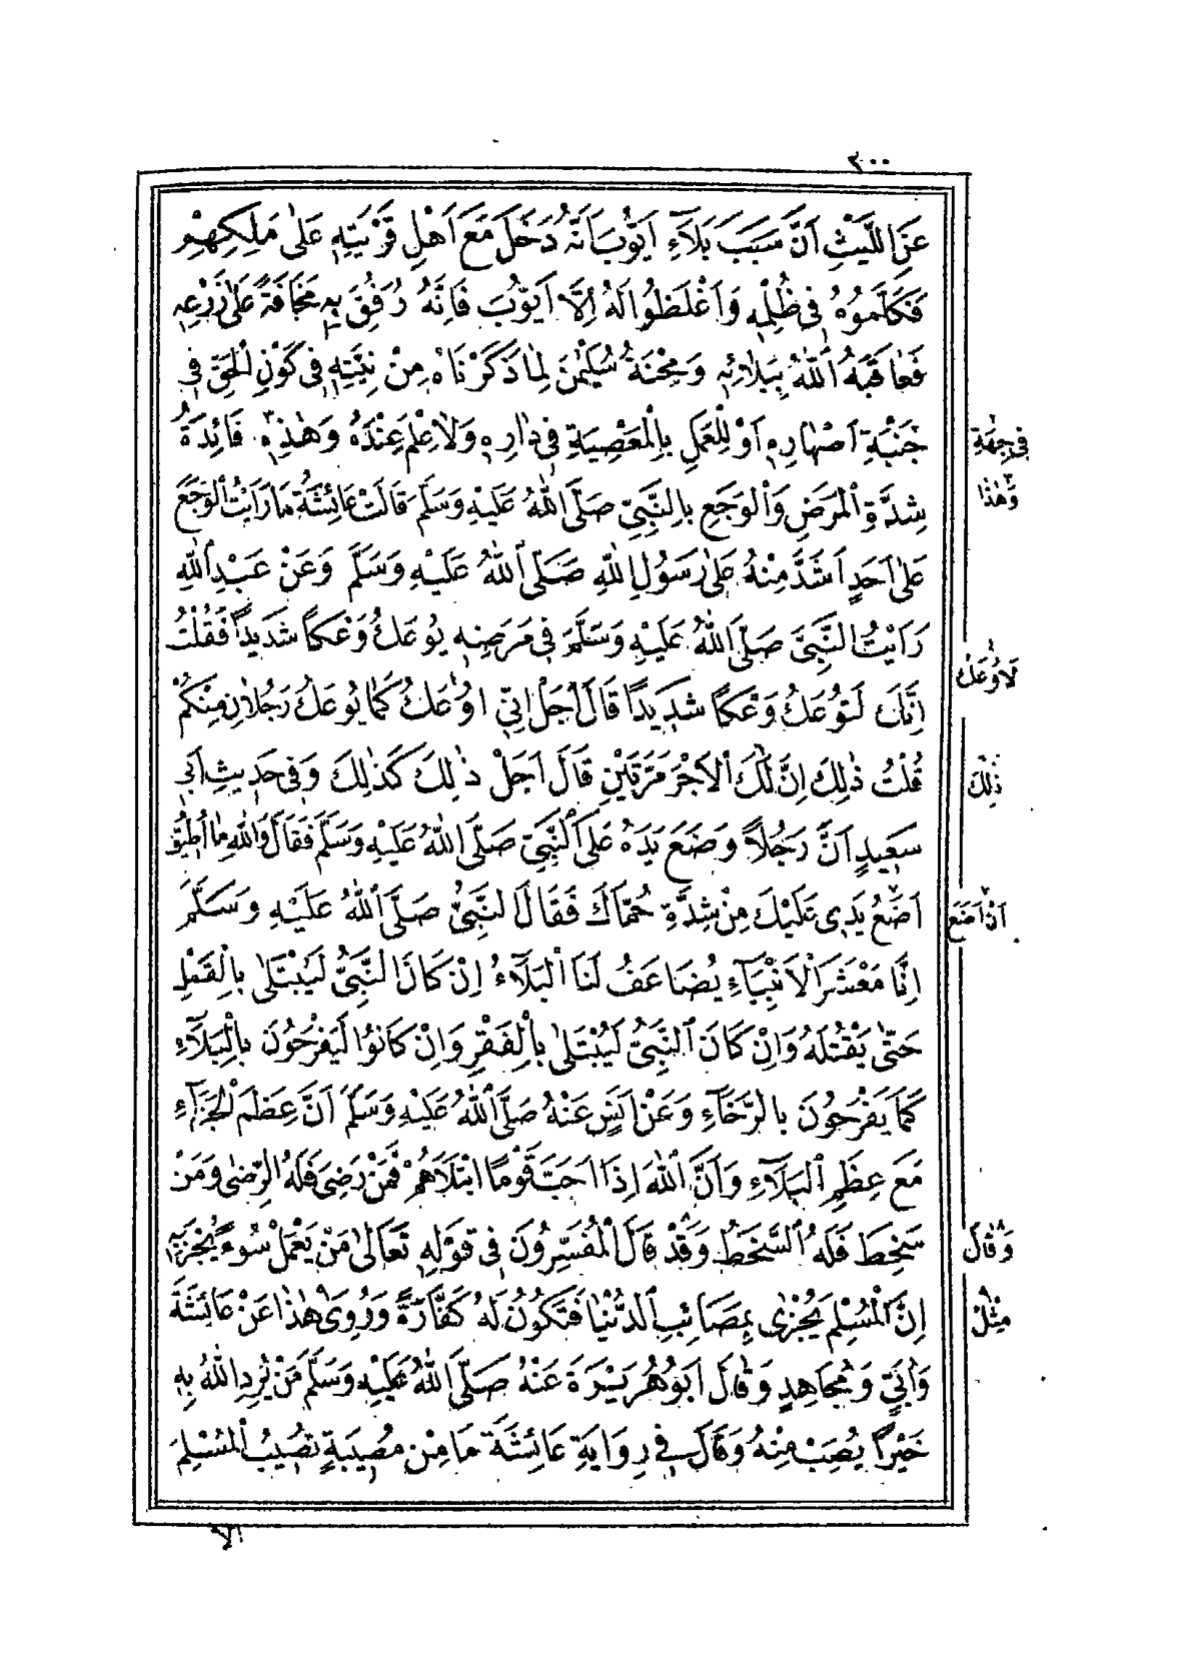 ٢٠٠
عَنِ اللَّيْثِ اَنَّ سَبَبَ بَلَآءِ اَيُّوبَ اَنَّهُ دَخَلَ مَعَ اَهْلِ قَرْيَتِهِ عَلٰى مَلِكِهِمْ
فَكَلَّمُوهُ فِى ظُلْمِهِ وَاَغْلَظُوا لَهُ اِلَّا اَيُّوبَ فَاِنَّهُ رَفُقَ بِهِ مَخَافَةً عَلٰى زَرْعِهِ
فَعَاقَبَهُ اللّٰهُ بِبَلَائِهِ وَمِحْنَةُ سُلَيْمٰنَ لِمَا ذَكَرْنَاهُ مِنْ نِيَّتِهِ فِى كَوْنِ الْحَقِّ فِى
جَنَبَةِ اَصْهَارِهِ اَوْ لِلْعَمَلِ بِالْمَعْصِيَةِ فِى دَارِهِ وَلَا عِلْمَ عِنْدَهُ وَهٰذِهِ فَائِدَةُ
فِى جِهَةِ
وَهٰذَا
شِدَّةِ الْمَرَضِ وَالْوَجَعِ بِالنَّبِيِّ صَلَّى اللّٰهُ عَلَيْهِ وَسَلَّمَ قَالَتْ عَائِشَةُ مَا رَاَيْتُ الْوَجَعَ
عَلٰى اَحَدٍ اَشَدَّ مِنْهُ عَلٰى رَسُولِ اللّٰهِ صَلَّى اللّٰهُ عَلَيْهِ وَسَلَّمَ وَعَنْ عَبْدِ اللّٰهِ
رَاَيْتُ النَّبِيَّ صَلَّى اللّٰهُ عَلَيْهِ وَسَلَّمَ فِى مَرَضِهِ يُوعَكُ وَعْكًا شَدِيدًا فَقُلْتُ
لَاُوعَكُ
اِنَّكَ لَتُوعَكُ وَعْكًا شَدِيدًا قَالَ اَجَلْ اِنِّى اُوعَكُ كَمَا يُوعَكُ رَجُلَانِ مِنْكُمْ
قُلْتُ ذٰلِكَ اِنَّ لَكَ الْاَجْرَ مَرَّتَيْنِ قَالَ اَجَلْ ذٰلِكَ كَذٰلِكَ وَفِى حَدِيثِ اَبِى
ذٰلِكَ
سَعِيدٍ اَنَّ رَجُلًا وَضَعَ يَدَهُ عَلَى النَّبِيِّ صَلَّى اللّٰهُ عَلَيْهِ وَسَلَّمَ فَقَالَ وَاللّٰهِ مَا اُطِيقُ
اَضَعُ يَدِى عَلَيْكَ مِنْ شِدَّةِ حُمَّاكَ فَقَالَ النَّبِيُّ صَلَّى اللّٰهُ عَلَيْهِ وَسَلَّمَ
اَنْ اَضَعَ
اِنَّا مَعْشَرَ الْاَنْبِيَآءِ يُضَاعَفُ لَنَا الْبَلَآءُ اِنْ كَانَ النَّبِيُّ لَيُبْتَلٰى بِالْقَمْلِ
حَتّٰى يَقْتُلَهُ وَاِنْ كَانَ النَّبِيُّ لَيُبْتَلٰى بِالْفَقْرِ وَاِنْ كَانُوا لَيَفْرَحُونَ بِالْبَلَآءِ
كَمَا يَفْرَحُونَ بِالرَّخَآءِ وَعَنْ اَنَسٍ عَنْهُ صَلَّى اللّٰهُ عَلَيْهِ وَسَلَّمَ اَنَّ عِظَمَ الْجَزَآءِ
مَعَ عِظَمِ الْبَلَآءِ وَاَنَّ اللّٰهَ اِذَا اَحَبَّ قَوْمًا ابْتَلَاهُمْ فَمَنْ رَضِىَ فَلَهُ الرِّضٰى وَمَنْ
سَخِطَ فَلَهُ السَّخَطُ وَقَدْ قَالَ الْمُفَسِّرُونَ فِى قَوْلِهِ تَعَالٰى مَنْ يَعْمَلْ سُوءً يُجْزَ بِهِ
وَقَالَ
اِنَّ الْمُسْلِمَ يُجْزٰى بِمَصَائِبِ الدُّنْيَا فَتَكُونُ لَهُ كَفَّارَةً وَرُوِىَ هٰذَا عَنْ عَائِشَةَ
مِثْلُ
وَاُبَىٍّ وَمُجَاهِدٍ وَقَالَ اَبُو هُرَيْرَةَ عَنْهُ صَلَّى اللّٰهُ عَلَيْهِ وَسَلَّمَ مَنْ يُرِدِ اللّٰهُ بِهِ
خَيْرًا يُصِبْ مِنْهُ وَقَالَ فِى رِوَايَةِ عَائِشَةَ مَا مِنْ مُصِيبَةٍ تُصِيبُ الْمُسْلِمَ
اِلَّا